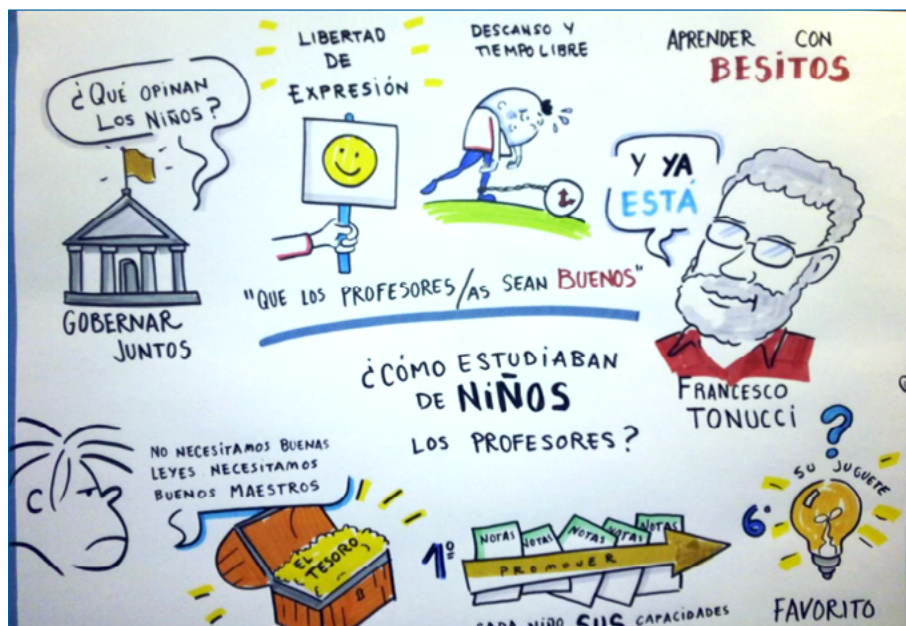 ¿QUÉ OPINAN
LOS NIÑOS?
GOBERNAR
JUNTOS
LIBERTAD
DE
EXPRESIÓN
DESCANSO Y
TIEMPO LIBRE
APRENDER CON
BESITOS
Y YA
ESTÁ
FRANCESCO
TONUCCI
"QUE LOS PROFESORES/AS SEAN BUENOS"
¿CÓMO ESTUDIABAN
DE NIÑOS
LOS PROFESORES?
NO NECESITAMOS BUENAS
LEYES NECESITAMOS
BUENOS MAESTROS
EL
TESORO
1º
NOTAS NOTAS NOTAS NOTAS NOTAS
PROMOVER
CADA NIÑO SUS CAPACIDADES
6º
SU JUGUETE
FAVORITO